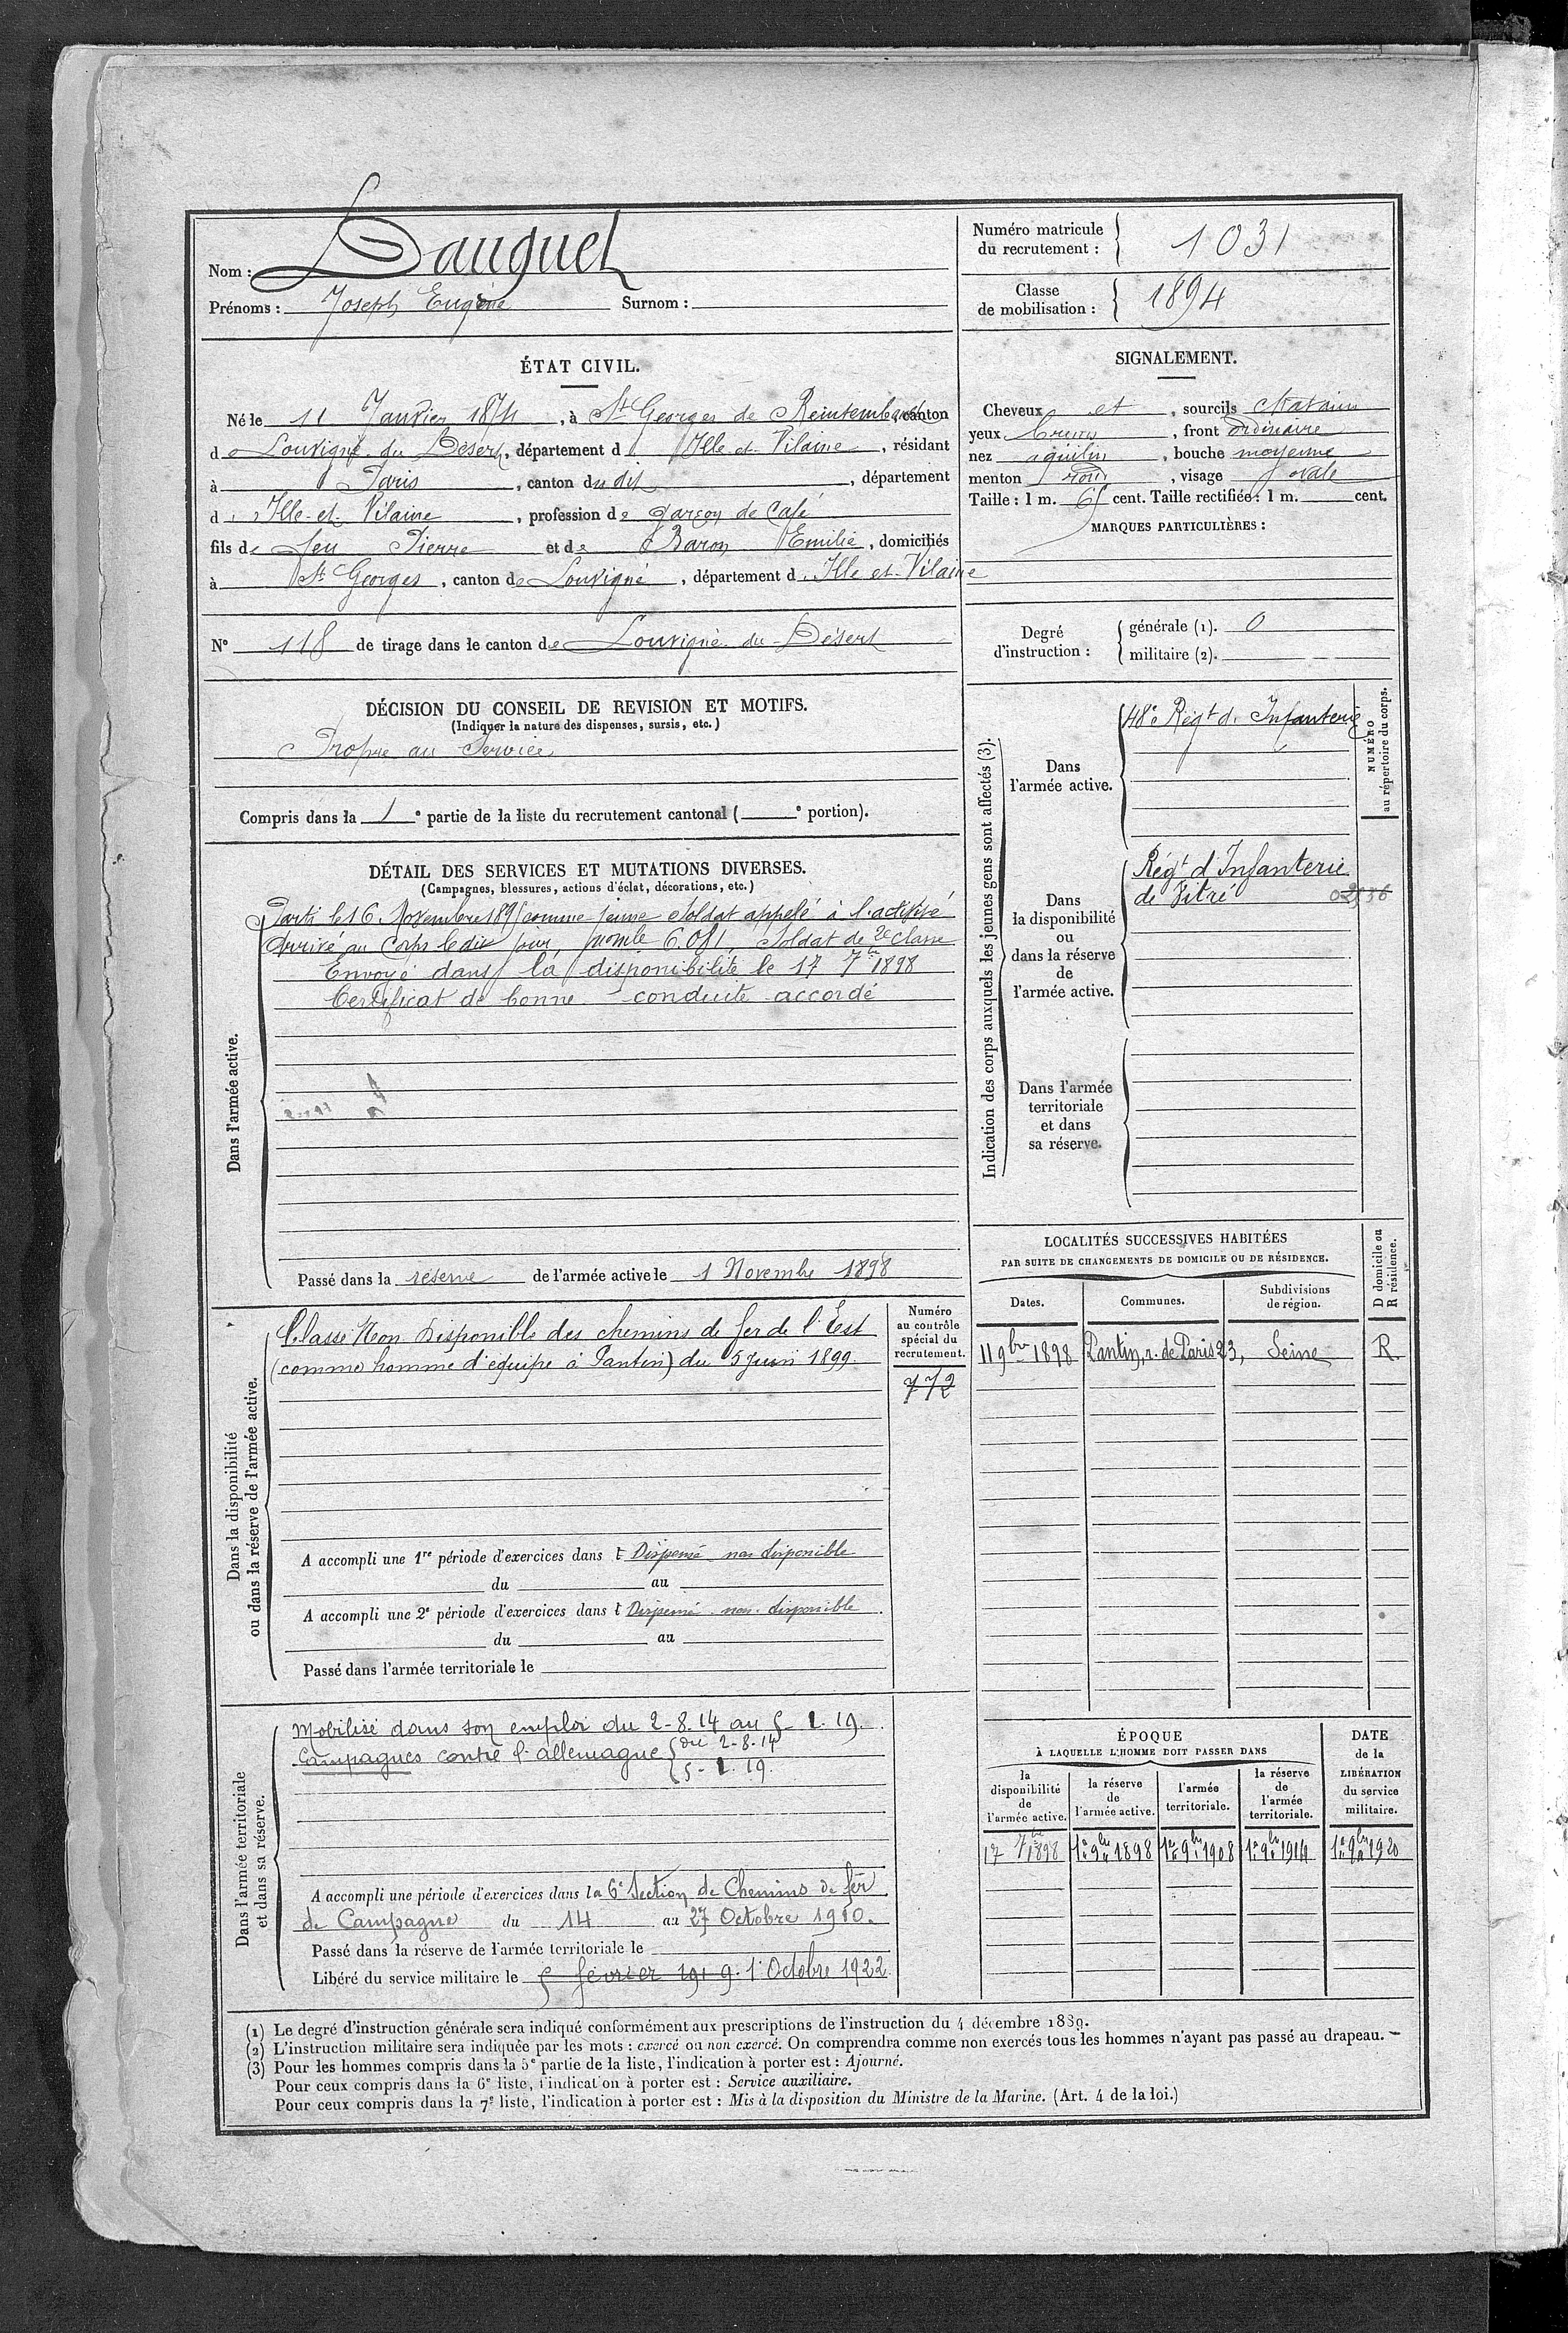 Nom : Dauguet
Prénoms : Joseph Eugène Surnom :
Numéro matricule
du recrutement : 1031
Classe
de mobilisation : 1894
ÉTAT CIVIL.
Né le 11 Janvier 1874, à St Georges de Reintembault, canton
de Louvigné du Désert, département d Ille et Vilaine, résidant
à Paris, canton du dit, département
d Ille-et-Vilaine, profession de garçon de Café
fils de feu Pierre et de Baron Emilie, domiciliés
à St Georges, canton de Louvigné, département d Ille et Vilaine
N° 118 de tirage dans le canton de Louvigné du Désert
SIGNALEMENT.
Cheveux et, sourcils chatains
yeux bruns, front ordinaire
nez aquilin, bouche moyenne
menton rond, visage ovale
Taille : 1 m. 65 cent. Taille rectifiée : 1 m. cent.
MARQUES PARTICULIÈRES :
Degré
d'instruction :
générale (1). 0
militaire (2).
DÉCISION DU CONSEIL DE REVISION ET MOTIFS.
(Indiquer la nature des dispenses, sursis, etc.)
Propre au Service
Compris dans la 1e partie de la liste du recrutement cantonal ( e portion).
DÉTAIL DES SERVICES ET MUTATIONS DIVERSES.
(Campagnes, blessures, actions d'éclat, décorations, etc.)
Dans l'armée active.
Parti le 16 Novembre 1895 comme jeune Soldat appelé à l'activité
Arrivé au Corps le dit jour, mle 6.081, Soldat de 2e classe
Envoyé dans la disponibilité le 17 7bre 1898
Certificat de bonne conduite accordé
Passé dans la réserve de l'armée active le 1 Novembre 1898
Indication des corps auxquels les jeunes gens sont affectés (3).
NUMÉRO
au répertoire du corps.
Dans
l'armée active.
48e Régt d'Infanterie
Dans
la disponibilité
ou
dans la réserve
de
l'armée active.
Régt d'Infanterie
de Vitré
Dans l'armée
territoriale
et dans
sa réserve.
LOCALITÉS SUCCESSIVES HABITÉES
PAR SUITE DE CHANGEMENTS DE DOMICILE OU DE RÉSIDENCE.
D domicile ou
R résidence.
Dates. Communes. Subdivisions
de région.
11 9bre 1898 Pantin, r. de Paris 23, Seine R
Dans la disponibilité
ou dans la réserve de l'armée active.
Classé Non Disponible des chemins de fer de l'Est
(comme homme d'équipe à Pantin) du 5 Juin 1899.
Numéro
au contrôle
spécial du
recrutement.
772
A accompli une 1re période d'exercices dans l Dispensé non disponible
du au
A accompli une 2e période d'exercices dans l Dispensé non disponible
du au
Passé dans l'armée territoriale le
Dans l'armée territoriale
et dans sa réserve.
Mobilisé dans son emploi du 2-8.14 au 5-2.19.
Campagnes contre l'allemagne { du 2-8.14
5-2.19.
A accompli une période d'exercices dans la 6e Section de Chemins de fer
de Campagne du 14 au 27 Octobre 1910.
Passé dans la réserve de l'armée territoriale le
Libéré du service militaire le 5 février 1919. 1er Octobre 1922
ÉPOQUE
À LAQUELLE L'HOMME DOIT PASSER DANS
la
disponibilité
de
l'armée active.
la réserve
de
l'armée active.
l'armée
territoriale.
la réserve
de
l'armée
territoriale.
DATE
de la
LIBÉRATION
du service
militaire.
17 7bre 1898 1er 9bre 1898 1er 9bre 1908 1er 9bre 1914 1er 9bre 1920
(1) Le degré d'instruction générale sera indiqué conformément aux prescriptions de l'instruction du 4 décembre 1889.
(2) L'instruction militaire sera indiquée par les mots : exercé ou non exercé. On comprendra comme non exercés tous les hommes n'ayant pas passé au drapeau.
(3) Pour les hommes compris dans la 5e partie de la liste, l'indication à porter est : Ajourné.
Pour ceux compris dans la 6e liste, l'indication à porter est : Service auxiliaire.
Pour ceux compris dans la 7e liste, l'indication à porter est : Mis à la disposition du Ministre de la Marine. (Art. 4 de la loi.)